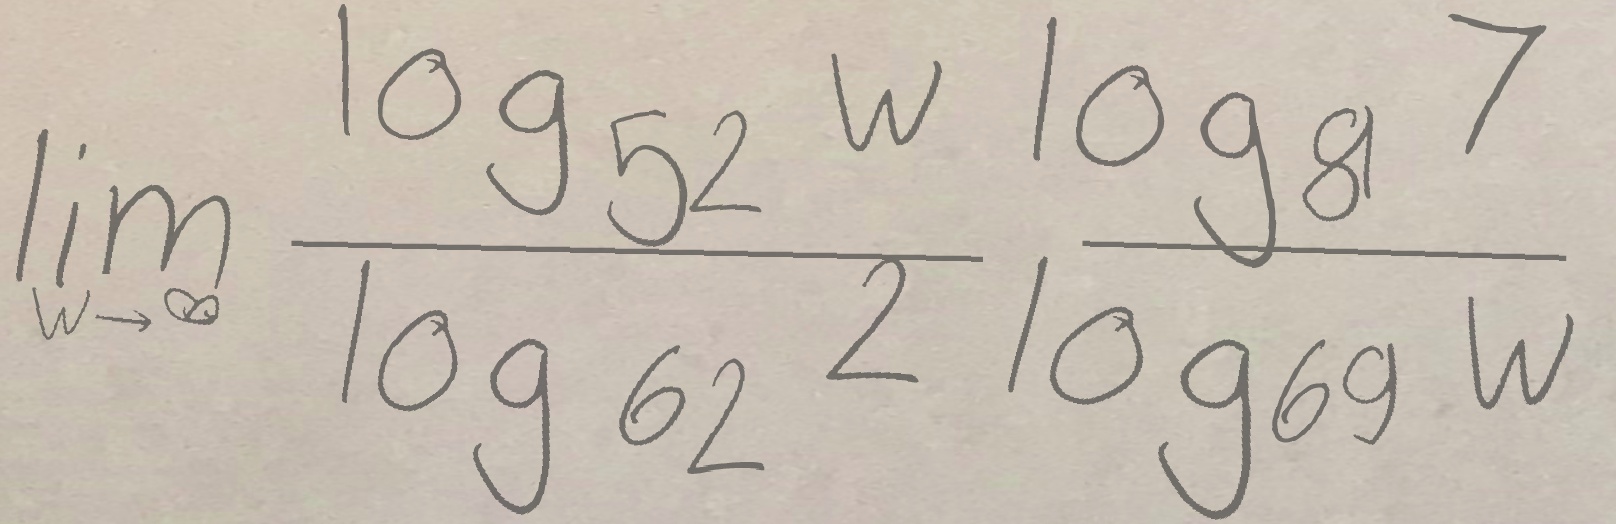 \lim_{w \to \infty} \frac{\log_{52} w}{\log_{62} 2} \frac{\log_{81} 7}{\log_{69} w}